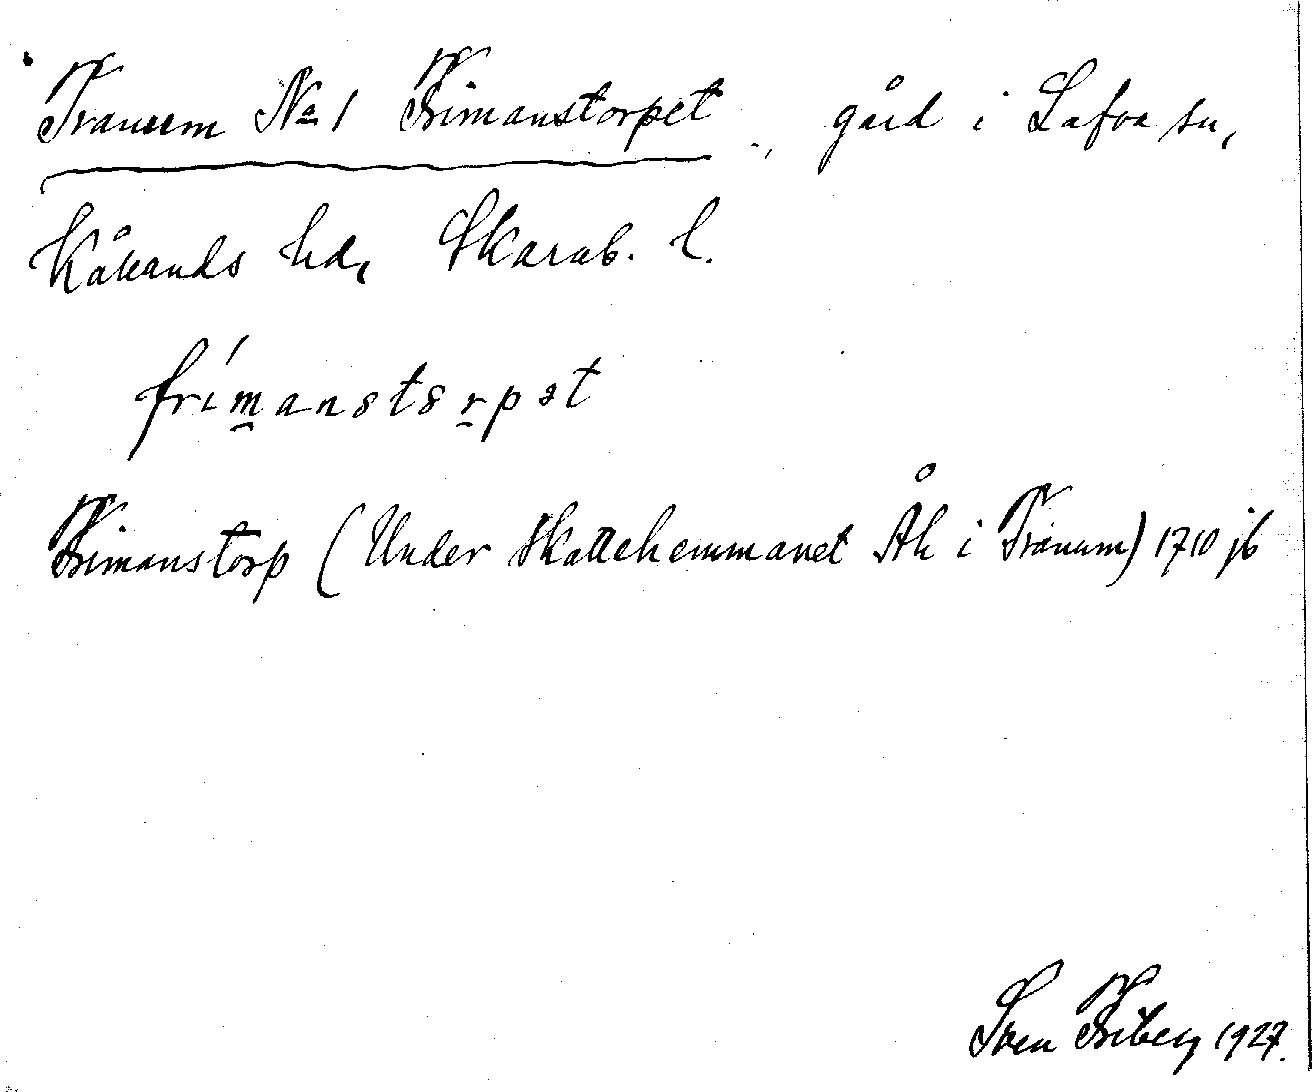 Tranum No 1 Frimanstorpet, gård i Lafva sn,
Kåkands hd, Skarab. l.
frímanstsrpət
Frimanstorp (Under Skattehemmanet Åk i Tranum) 1710 jb
Sven Friberg 1927.